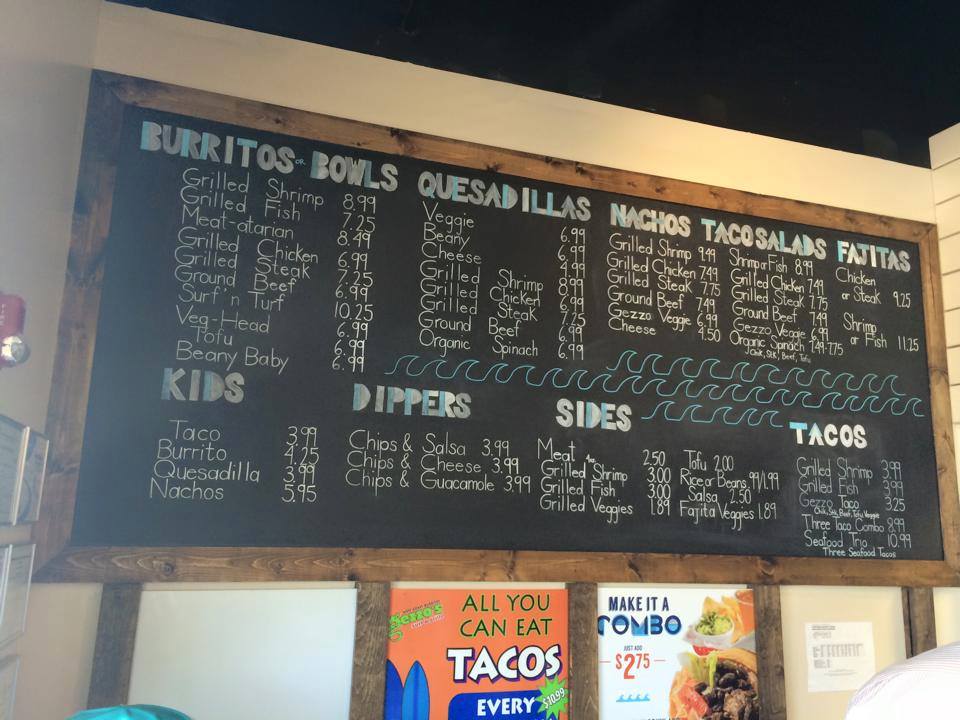 BURRITOS OR BOWLS
Grilled Shrimp 8.99
Grilled Fish 7.25
Meat-atarian 8.49
Grilled Chicken 6.99
Grilled Steak 7.25
Ground Beef 6.99
Surf 'n Turf 10.25
Veg-Head 6.99
Tofu 6.99
Beany Baby 6.99
QUESADILLAS
Veggie 6.99
Beany 6.99
Cheese 4.99
Grilled Shrimp 8.99
Grilled Chicken 6.99
Grilled Steak 7.25
Ground Beef 6.99
Organic Spinach 6.99
NACHOS
Grilled Shrimp 9.49
Grilled Chicken 7.49
Grilled Steak 7.75
Ground Beef 7.49
Gezzo Veggie 6.99
Cheese 4.50
TACO SALADS
Shrimp or Fish 8.99
Grilled Chicken 7.49
Grilled Steak 7.75
Ground Beef 7.49
Gezzo Veggie 6.99
Organic Spinach 7.49-7.75
Chik, Stk, Beef, Tofu
FAJITAS
Chicken
or Steak 9.25
Shrimp
or Fish 11.25
KIDS
Taco 3.99
Burrito 4.25
Quesadilla 3.99
Nachos 5.95
DIPPERS
Chips & Salsa 3.99
Chips & Cheese 3.99
Chips & Guacamole 3.99
SIDES
Meat 2.50
Grilled Shrimp 3.00
Grilled Fish 3.00
Grilled Veggies 1.89
Tofu 2.00
Rice or Beans .99/1.99
Salsa 2.50
Fajita Veggies 1.89
TACOS
Grilled Shrimp 3.99
Grilled Fish 3.99
Gezzo Taco 3.25
Chik, Stk, Beef, Tofu, Veggie
Three Taco Combo 8.99
Seafood Trio 10.99
Three Seafood Tacos
Gezzo's
ALL YOU
CAN EAT
TACOS
EVERY
$10.99
MAKE IT A
COMBO
JUST ADD
$2.75